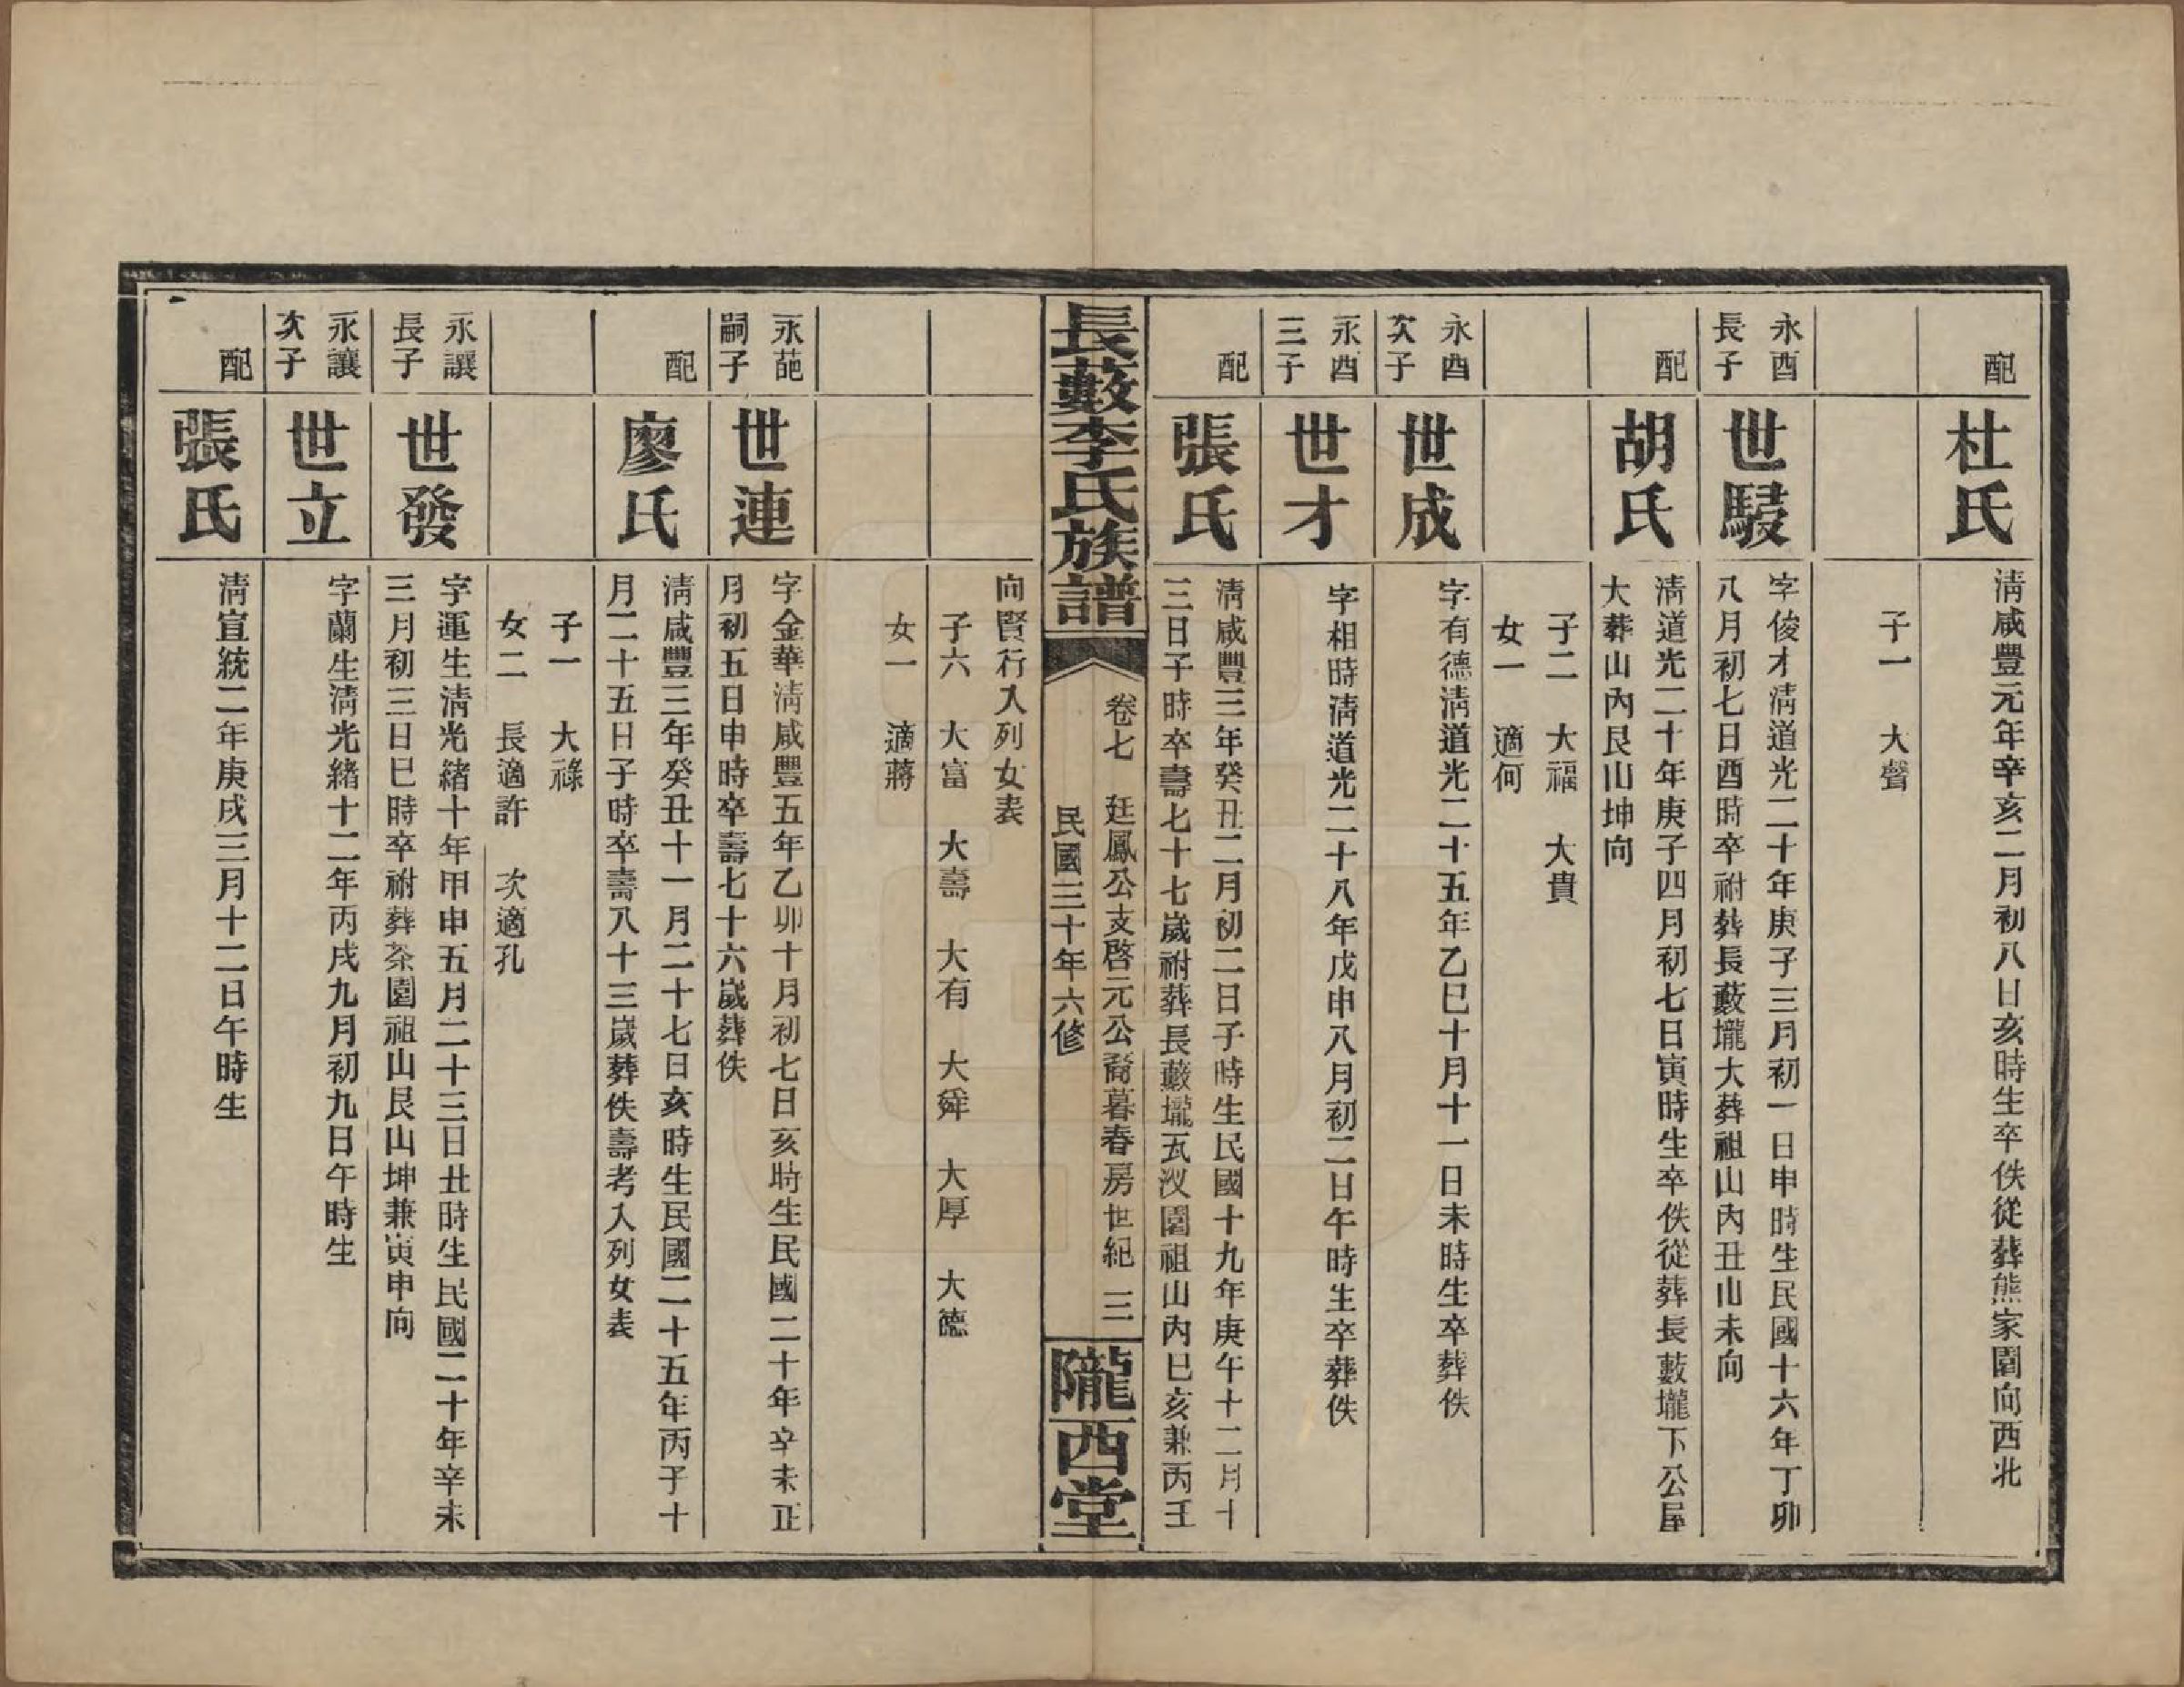 配
杜氏
清咸豐元年辛亥二月初八日亥時生卒佚從葬熊家園向西北
子一　大聲
永酉
長子
世駸
字俊才清道光二十年庚子三月初一日申時生民國十六年丁卯
八月初七日酉時卒祔葬長藪壠大葬祖山內丑山未向
配
胡氏
清道光二十年庚子四月初七日寅時生卒佚從葬長藪壠下公屋
大葬山內艮山坤向
子二　大福　大貴
女一　適何
永酉
次子
世成
字有德清道光二十五年乙巳十月十一日未時生卒葬佚
永酉
三子
世才
字相時清道光二十八年戊申八月初二日午時生卒葬佚
配
張氏
清咸豐三年癸丑二月初二日子時生民國十九年庚午十二月十
三日子時卒壽七十七歲祔葬長藪壠瓦汊園祖山內巳亥兼丙壬
長藪李氏族譜
卷七　廷鳳公支啓元公裔暮春房世紀　三
民國三十年六修
隴西堂
向賢行入列女表
子六　大富　大壽　大有　大舜　大厚　大德
女一　適蔣
永葩
嗣子
世連
字金華清咸豐五年乙卯十月初七日亥時生民國二十年辛未正
月初五日申時卒壽七十六歲葬佚
配
廖氏
清咸豐三年癸丑十一月二十七日亥時生民國二十五年丙子十
月二十五日子時卒壽八十三歲葬佚壽考入列女表
子一　大祿
女二　長適許　次適孔
永讓
長子
世發
字運生清光緒十年甲申五月二十三日丑時生民國二十年辛未
三月初三日巳時卒祔葬茶園祖山艮山坤兼寅申向
永讓
次子
世立
字蘭生清光緒十二年丙戌九月初九日午時生
配
張氏
清宣統二年庚戌三月十二日午時生